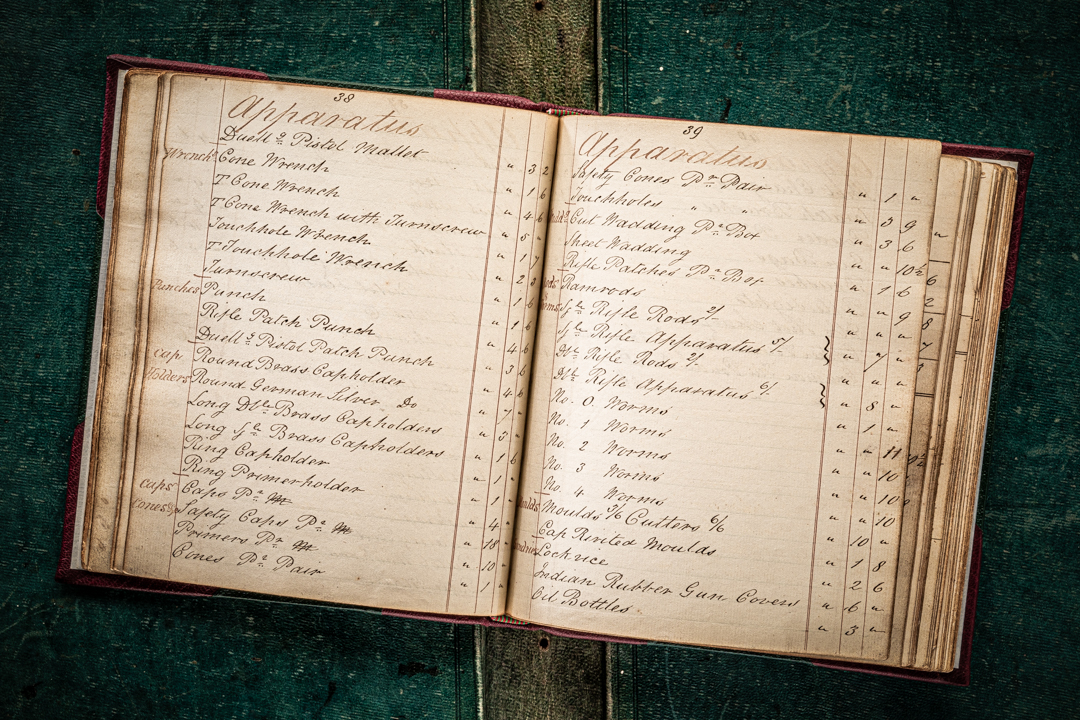 38
Apparatus
Duell.g Pistol Mallet " 3 2
Wrenches Cone Wrench " 1 6
T Cone Wrench " 4 6
T Cone Wrench with Turnscrew " 5 "
Touchhole Wrench " 1 7
T Touchhole Wrench " 2 3
Turnscrew " 1 6
Punches Punch " 1 6
Rifle Patch Punch " 4 6
Duell.g Pistol Patch Punch " 3 6
Cap Round Brass Capholder " 4 6
Holders Round German Silver Do " 7 "
Long Dble Brass Capholders " 3 "
Long Sle Brass Capholders " 1 6
Ring Capholder " 1 "
Ring Primerholder " 1 "
Caps Caps Pr M " 4 "
Cones Safety Caps Pr M " 18 "
Primers Pr M " 10 "
Cones Pr Pair " 1 "
39
Apparatus
Safety Cones Pr Pair " 1 "
Touchholes " " " 3 9
Cut Wadding Pr Box " 3 6
Sheet Wadding " " 10½
Rifle Patches Pr Box " 1 6
Ramrods " " 9
Sle Rifle Rods 2/
Sle Rifle Apparatus 5/ " 7 "
Dble Rifle Rods 2/ " " "
Dble Rifle Apparatus 6/ " 8 "
No. 0 Worms " 1 "
No. 1 Worms " " 11
No. 2 Worms " " 10
No. 3 Worms " " 10
No. 4 Worms " " 10
Moulds 3/6 Cutters 6/6 " 10 "
Cap Rivited Moulds " 1 8
Lockvice " 2 6
Indian Rubber Gun Covers " 6 "
Oil Bottles " 3 "